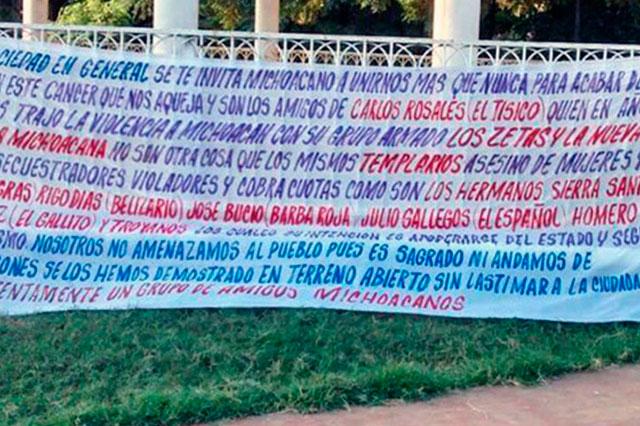 CIEDAD EN GENERAL SE TE INVITA MICHOACANO A UNIRNOS MAS QUE NUNCA PARA ACABAR D
N ESTE CANCER QUE NOS AQUEJA Y SON LOS AMIGOS DE CARLOS ROSALES (EL TISICO) QUIEN EN AN
S TRAJO LA VIOLENCIA A MICHOACAN CON SU GRUPO ARMADO LOS ZETAS Y LA NUEV
A MICHOACANA. NO SON OTRA COSA QUE LOS MISMOS TEMPLARIOS ASESINO DE MUJERES Y
SECUESTRADORES VIOLADORES Y COBRA CUOTAS COMO SON LOS HERMANOS SIERRA SAN
GRAS) RIGO DIAS (BELIZARIO) JOSE BUCIO (BARBA ROJA) JULIO GALLEGOS (EL ESPAÑOL) HOMERO
Z (EL GALLITO) Y TROYANOS LOS CUALES SU INTENCION ES APODERARSE DEL ESTADO Y SEG
SMO. NOSOTROS NO AMENAZAMOS AL PUEBLO PUES ES SAGRADO NI ANDAMOS DE
ONES SE LOS HEMOS DEMOSTRADO EN TERRENO ABIERTO SIN LASTIMAR A LA CIUDADA
ENTAMENTE UN GRUPO DE AMIGOS MICHOACANOS